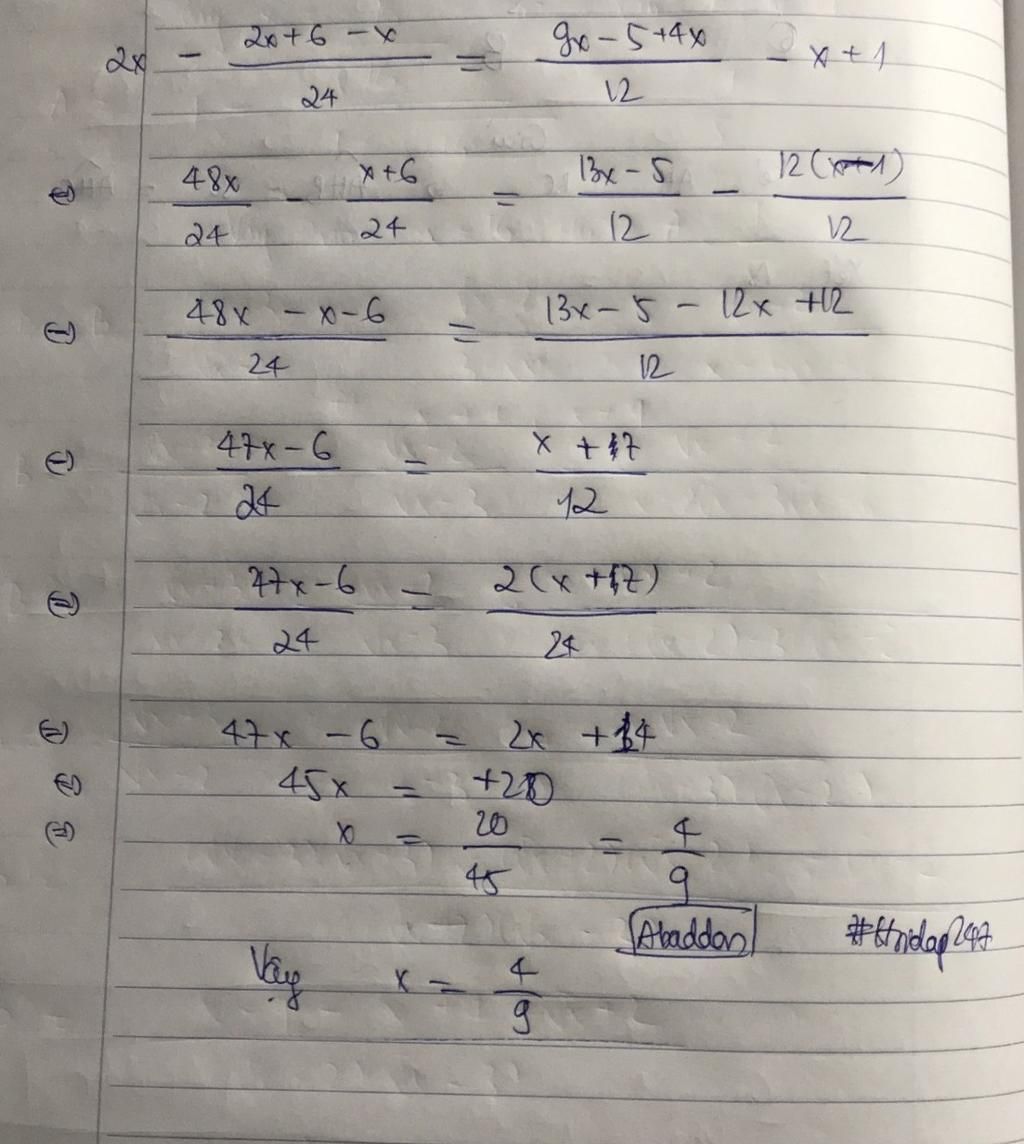 2x - (2x+6-x)/24 = (9x-5+4x)/12 - x+1
⇔ 48x/24 - (x+6)/24 = (13x-5)/12 - 12(x-1)/12
⇔ (48x-x-6)/24 = (13x-5-12x+12)/12
⇔ (47x-6)/24 = (x+7)/12
⇔ (47x-6)/24 = 2(x+7)/24
⇔ 47x-6 = 2x+14
⇔ 45x = +20
⇔ x = 20/45 = 4/9
Abaddon
Vậy x = 4/9